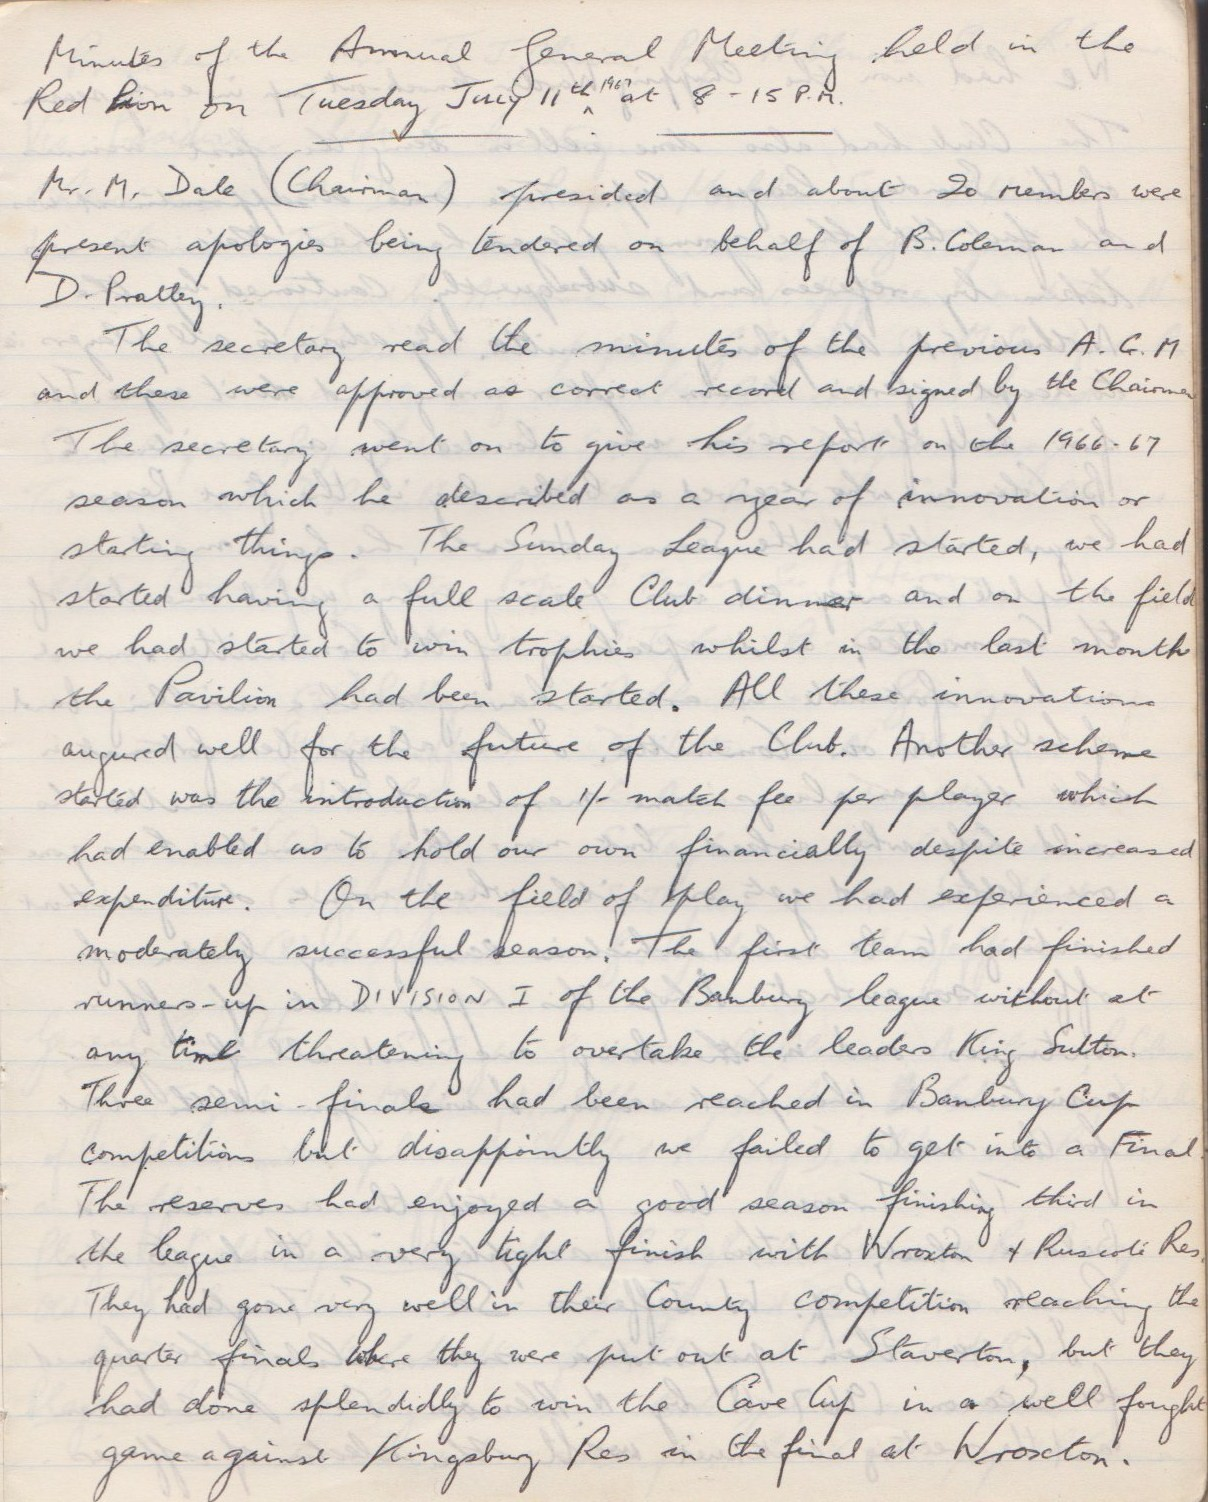 Minutes of the Annual General Meeting held in the
Red Lion on Tuesday July 11th 1967 at 8-15 P.M.
Mr. M. Dale (Chairman) presided and about 20 members were
present apologies being tendered on behalf of B. Coleman and
D. Pratley.
The secretary read the minutes of the previous A.G.M
and these were approved as correct record and signed by the Chairman
The secretary went on to give his report on the 1966-67
season which he described as a year of innovation or
starting things. The Sunday League had started, we had
started having a full scale Club dinner and on the field
we had started to win trophies whilst in the last month
the Pavilion had been started. All these innovations
augured well for the future of the Club. Another scheme
started was the introduction of 1/- match fee per player which
had enabled us to hold our own financially despite increased
expenditure. On the field of play we had experienced a
moderately successful season. The first team had finished
runners-up in DIVISION I of the Banbury league without at
any time threatening to overtake the leaders King Sutton.
Three semi-finals had been reached in Banbury Cup
competitions but disappointly we failed to get into a Final.
The reserves had enjoyed a good season finishing third in
the league in a very tight finish with Wroxton + Ruscote Res.
They had gone very well in their County competition reaching the
quarter finals where they were put out at Staverton, but they
had done splendidly to win the Cave Cup in a well fought
game against Kingsbury Res in the final at Wroxton.